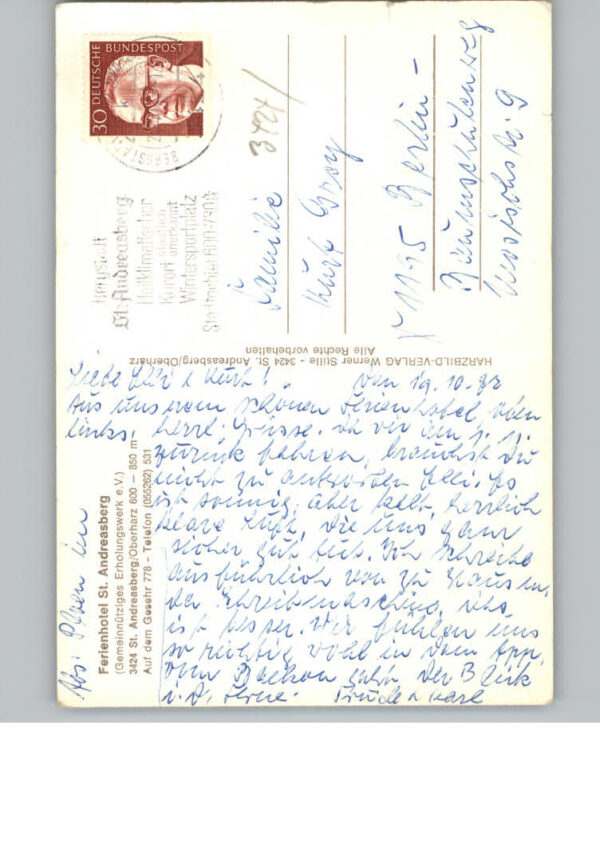 30 DEUTSCHE BUNDESPOST
BERGSTADT
Bergstadt
St. Andreasberg
Heilklimatischer
Kurort staatlich
anerkannt
Wintersportplatz
3424
Familie
Kurt
1195 Berlin-
Baumschulenweg
9
HARZBILD-VERLAG Werner Stille - 3424 St. Andreasberg/Oberharz
Alle Rechte vorbehalten
Liebe Elli & Kurt! den 19.10.
Aus unserem schönen Ferienhotel, oben
links, herzl. Grüsse. da wir am 1.11.
zurück fahren, brauchst Du
nicht zu antworten Elli. Es
ist sonnig, aber kalt, herrlich
klare Luft, die uns ganz
sicher gut tut. Ich schreibe
ausführlich von zu Haus m.
der Schreibmaschine,
ist besser. Wir fühlen uns
so richtig wohl in dem App.
vom Balkon geht der Blick
i. d. Ferne. Trude &
Abs.
Ferienhotel St. Andreasberg
(Gemeinnütziges Erholungswerk e.V.)
3424 St. Andreasberg/Oberharz 600 - 850 m
Auf dem Gesehr 778 - Telefon (055262) 531